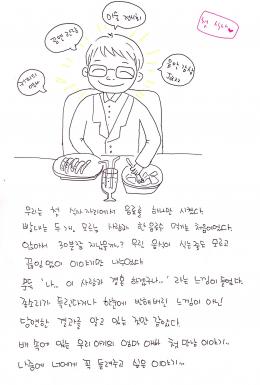 첫 식사♥
미술 전시회
공연 관람
음악 감상
우리는 첫 식사자리에서 음료를 하나만 시켰다
빨대는 두 개. 모르는 사람과 한 음료수 먹기는 처음이었다.
앉아서 30분쯤 지났을까? 우린 음식이 식는줄도 모르고
끊임없이 이야기만 나누었다
문득 '나.. 이 사람과 결혼 하겠구나..' 라는 느낌이 들었다.
종소리가 들린다거나 한눈에 반해버린 느낌이 아닌
당연한 결과를 알고 있는 것만 같았다.
배 속에 있는 우리 아기의 엄마 아빠 첫 만남 이야기..
나중에 너에게 꼭 들려주고 싶은 이야기..